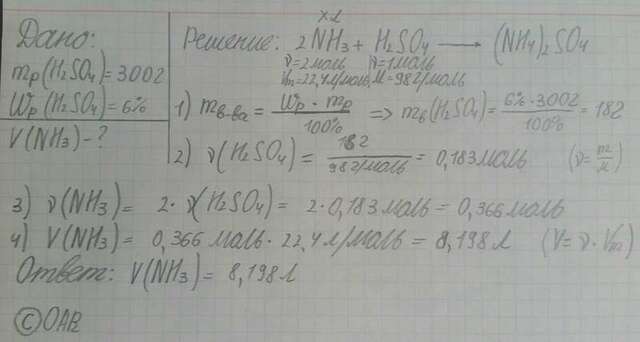 Дано:
mр(H₂SO₄)=300г
Wр(H₂SO₄)=6%
V(NH₃)-?
Решение:
x л
2NH₃ + H₂SO₄ → (NH₄)₂SO₄
ν=2моль ν=1моль
Vm=22,4л/моль M=98г/моль
1) mв-ва = Wр · mр / 100% => mв(H₂SO₄) = 6% · 300г / 100% = 18г
2) ν(H₂SO₄) = 18г / 98г/моль = 0,183моль (ν = m/M)
3) ν(NH₃) = 2 · ν(H₂SO₄) = 2 · 0,183моль = 0,366моль
4) V(NH₃) = 0,366 моль · 22,4л/моль = 8,198л (V = ν · Vm)
Ответ: V(NH₃) = 8,198л
©OAR